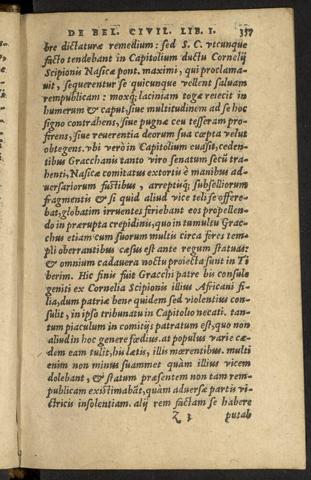 DE BEL. CIVIL. LIB. I. 357
bre dictaturæ remedium: sed S. C. vtcunque
facto tendebant in Capitolium ductu Cornelij
Scipionis Nasicæ pont. maximi, qui proclama-
uit, sequerentur se quicunque vellent saluam
rempublicam: moxq; laciniam togæ reiecit in
humerum & caput, siue multitudinem ad se hoc
signo contrahens, siue pugnæ ceu tesseram pro-
ferens, siue reuerentia deorum sua cœpta velut
obtegens. vbi verò in Capitolium euasit, ceden-
tibus Gracchanis tanto viro senatum secū tra-
henti, Nasicæ comitatus extortis è manibus ad-
uersariorum fustibus, arreptisq; subselliorum
fragmentis & si quid aliud vice teli se offere-
bat, globatim irruentes feriebant eos propellen-
do in prærupta crepidinū, quo in tumultu Grac-
chus etiam cum suorum multis circa fores tem-
pli oberrantibus cæsus est ante regum statuas:
& omnium cadauera noctu proiecta sunt in Ti
berim. Hic finis fuit Gracchi patre bis consule
geniti ex Cornelia Scipionis illius Africani fi-
lia, dum patriæ bene quidem sed violentius con-
sulit, in ipso tribunatu in Capitolio necati. tan-
tum piaculum in comitijs patratum est, quo non
aliud in hoc genere fœdius. at populus variè cæ-
dem eam tulit, his lætis, illis mœrentibus. multi
enim non minus suammet quàm illius vicem
dolebant, & statum præsentem non tam rem-
publicam existimabāt, quàm aduersæ partis vi-
ctricis insolentiam. alij rem factam se habere
Z 3 putab